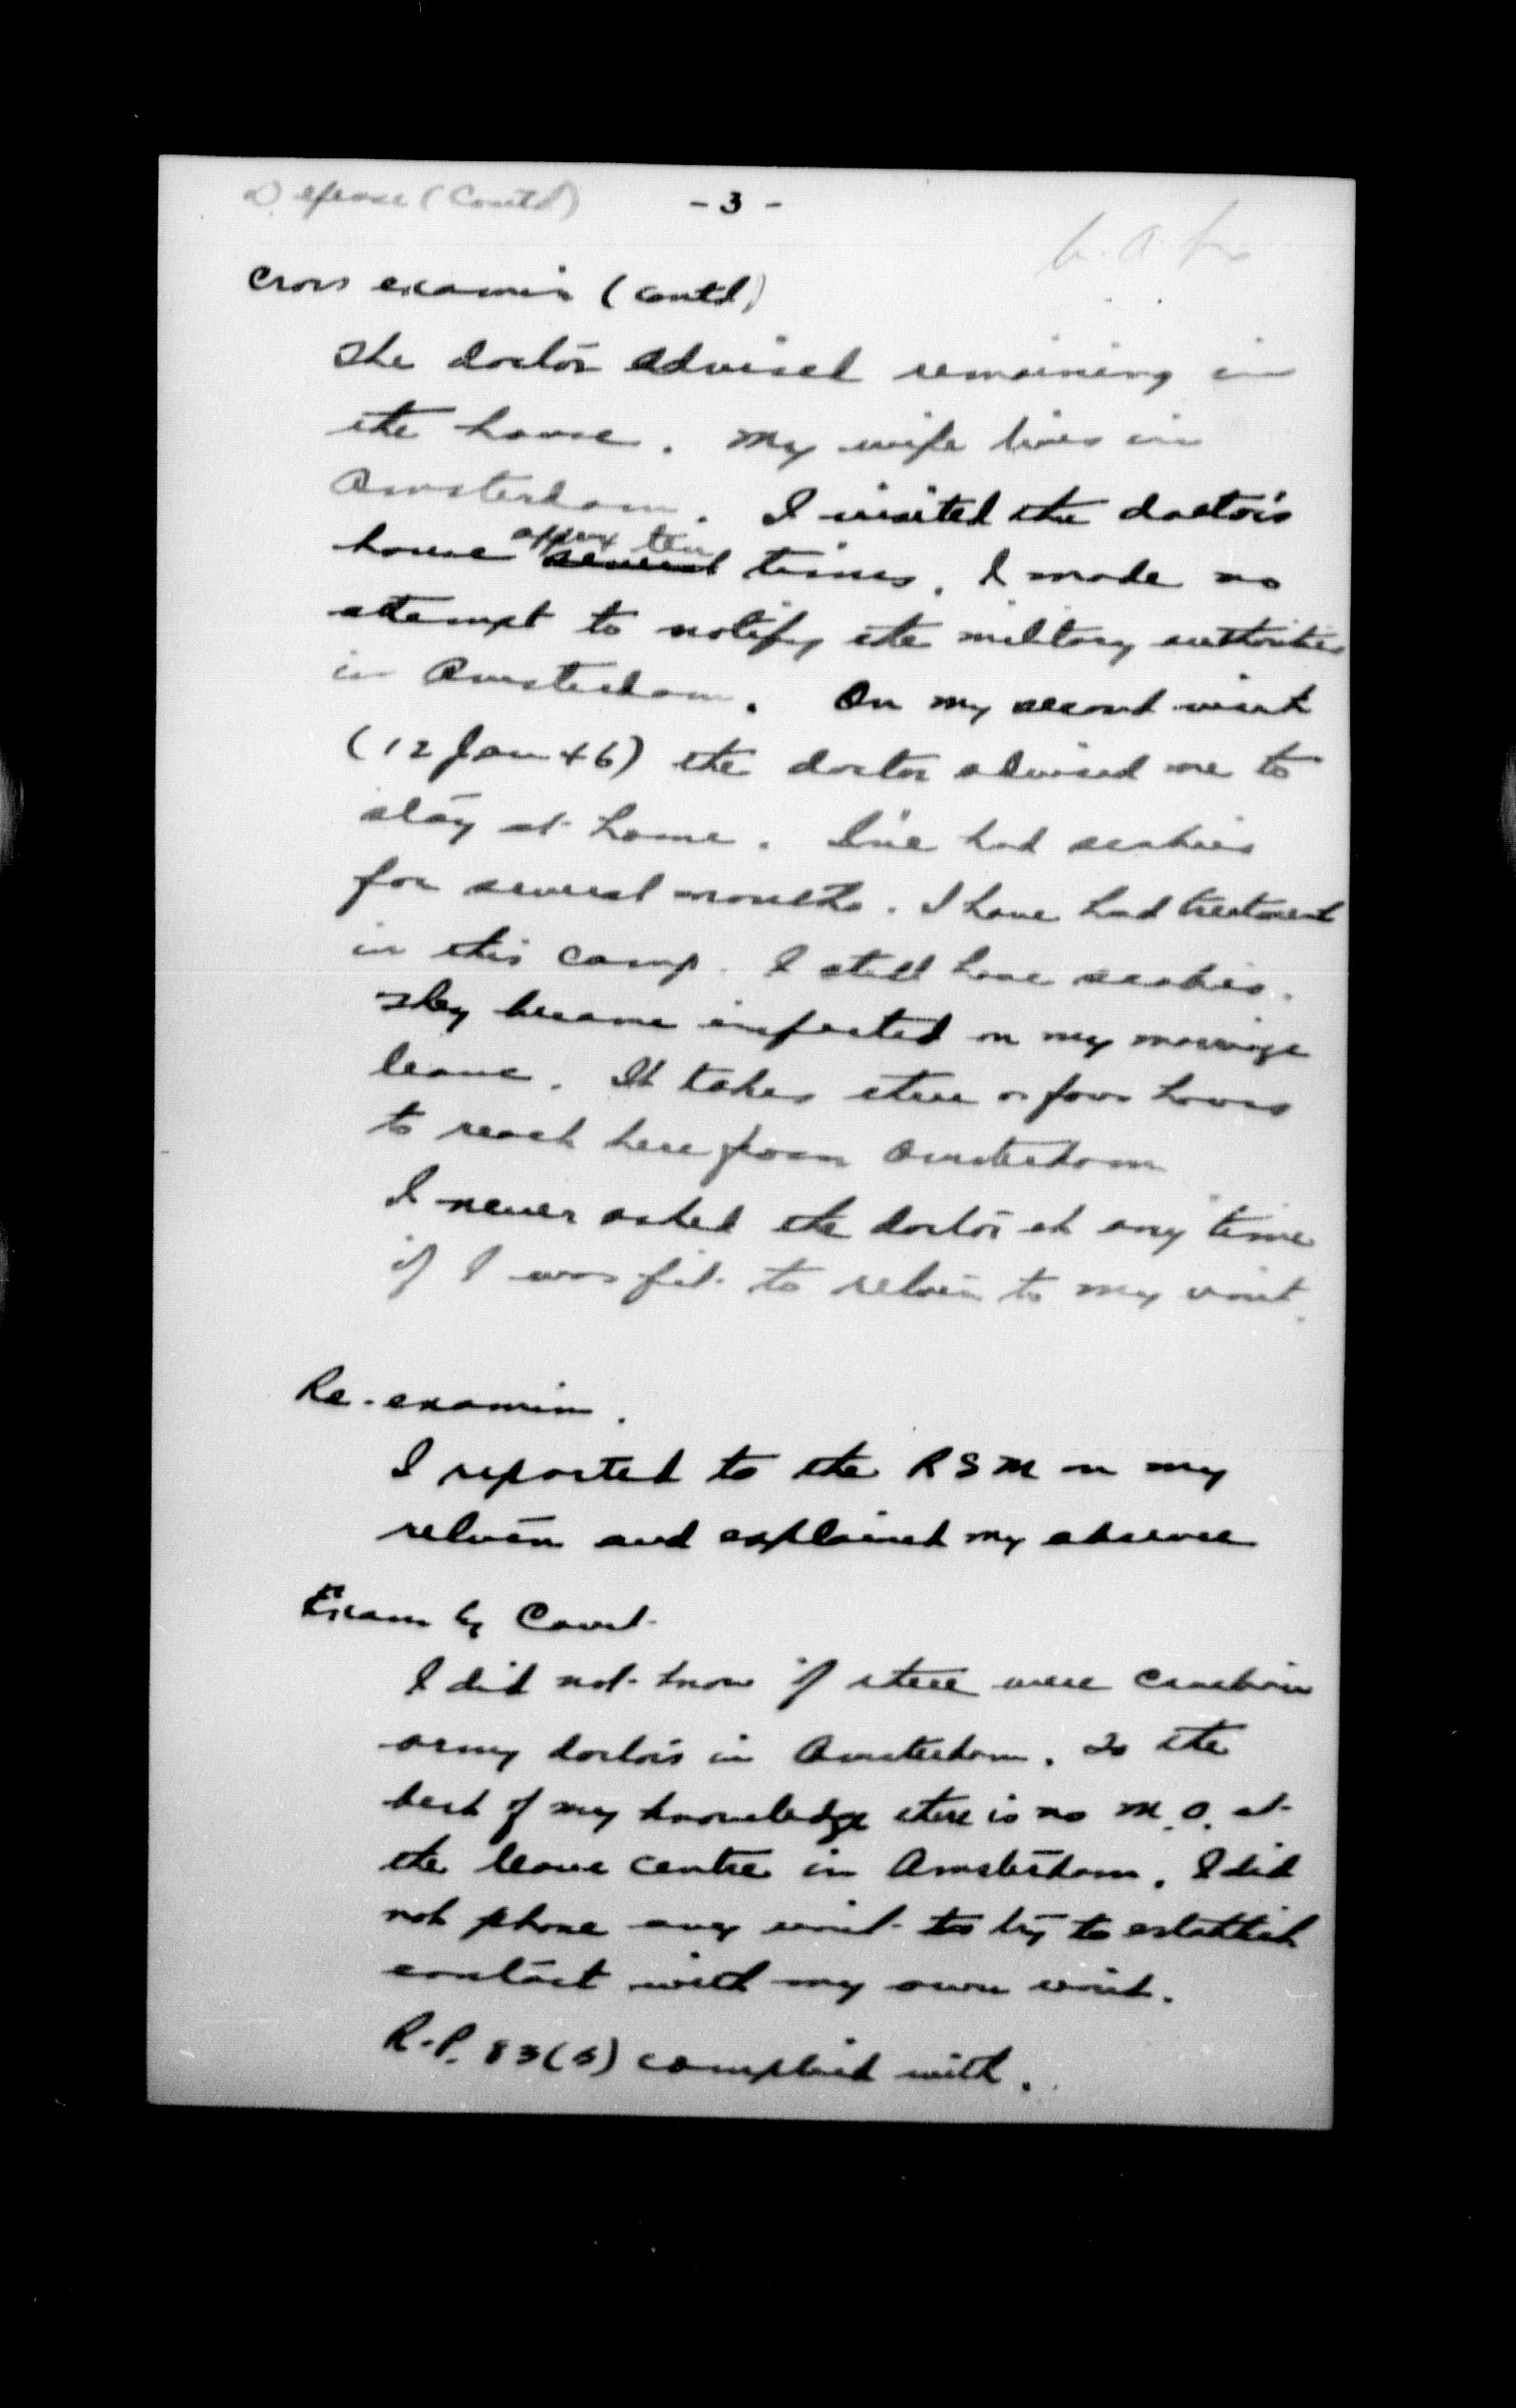 Defense (Contd)
- 3 -
Cross examin (contd)
The doctor advised remaining in
the house. My wife lives in
Amsterdam. I visited the doctor's
house approx ten several times. I made no
attempt to notify the military authorities
in Amsterdam. On my second visit
(12 Jan 46) the doctor advised me to
stay at home. I've had scabies
for several months. I have had treatment
in this camp. I still have scabies.
They became infected on my marriage
leave. It takes three or four hours
to reach here from Amsterdam
I never asked the doctor at any time
if I was fit to return to my unit.
Re-examin.
I reported to the RSM on my
return and explained my absence
Exam by Court
I did not know if there were Canadian
army doctors in Amsterdam. To the
best of my knowledge there is no M.O. at
the leave centre in Amsterdam. I did
not phone any unit to try to establish
contact with my own unit.
R.P. 83(B) complied with.